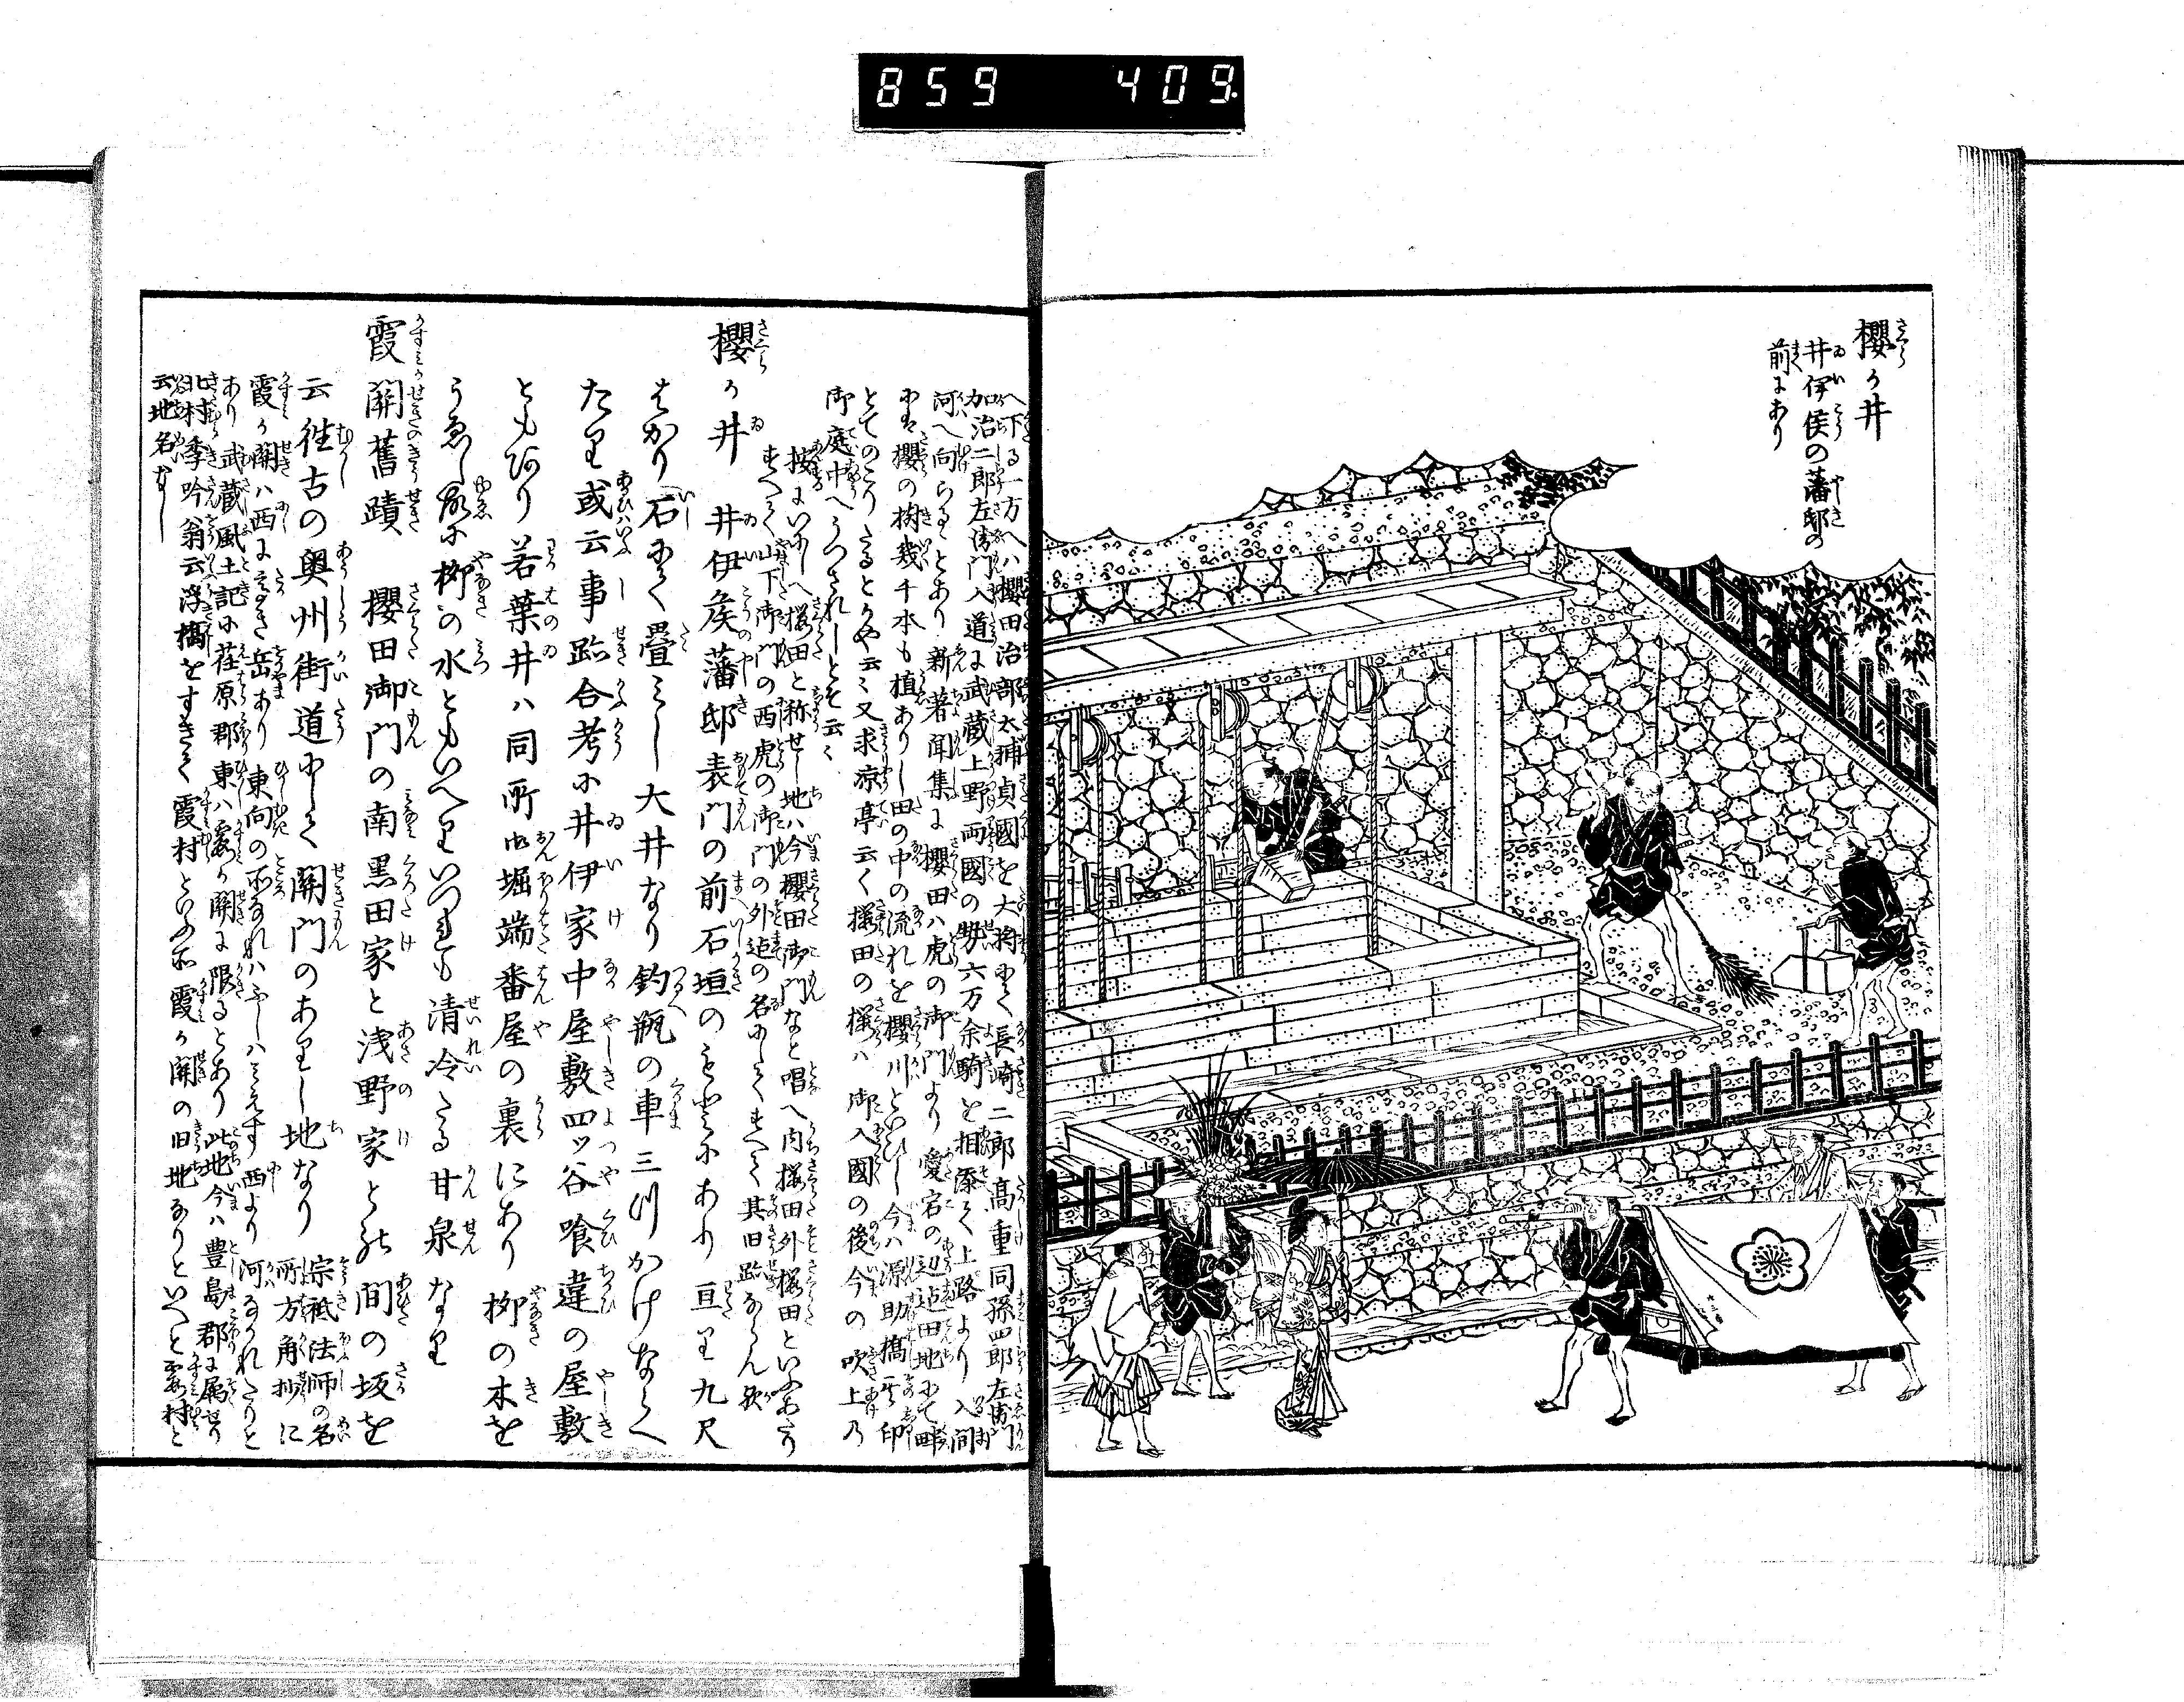 859 409
櫻か井
井伊侯の藩邸の
前にあり
へ下る一方へハ櫻田治部太輔貞國を大将にて長崎二郎高重同孫四郎左衛門
加治二郎左衛門入道に武蔵上野両國の勢六万余騎を相添て上路より入間
河へ向らるとあり新著聞集に櫻田ハ虎の御門より愛宕の辺迠田地にて畔
にハ櫻の樹幾千本も植ありし田の中の流れを櫻川といひし今ハ源助橋に印
とてのこりたるとかや云云又求凉亭云く櫻田の櫻ハ御入國の後今の吹上乃
御庭中へうつされしとそ云云
按にいにしへ櫻田と称せし地ハ今櫻田御門なと唱へ内櫻田外櫻田といふあたり
すへて山下御門の西虎の御門の外迠の名にしてすへて其旧跡ならん歟
櫻か井 井伊侯藩邸表門の前石垣のもとにあり亘り九尺
はかり石にて畳みし大井なり釣瓶の車三つかけならへ
たり或云事跡合考に井伊家中屋敷四ッ谷喰違の屋敷
ともあり若葉井ハ同所御堀端番屋の裏にあり柳の木を
うゑし故に柳の水ともいへりいつれも清冷たる甘泉なり
霞關舊蹟 櫻田御門の南黒田家と浅野家との間の坂を
云往古の奥州街道にして關門のありし地なり 宗祗法師の名
所方角抄に
霞か關ハ西に高き岳あり東向の所なれハふしハみえす西より河なかれたりと
あり武蔵風土記に荏原郡東ハ霞か關に限るとあり此地今ハ豊島郡に属せり
北村季吟翁云浮橋をすきて霞村といふ所霞か關の旧地なりといへと霞村と
云地名なし